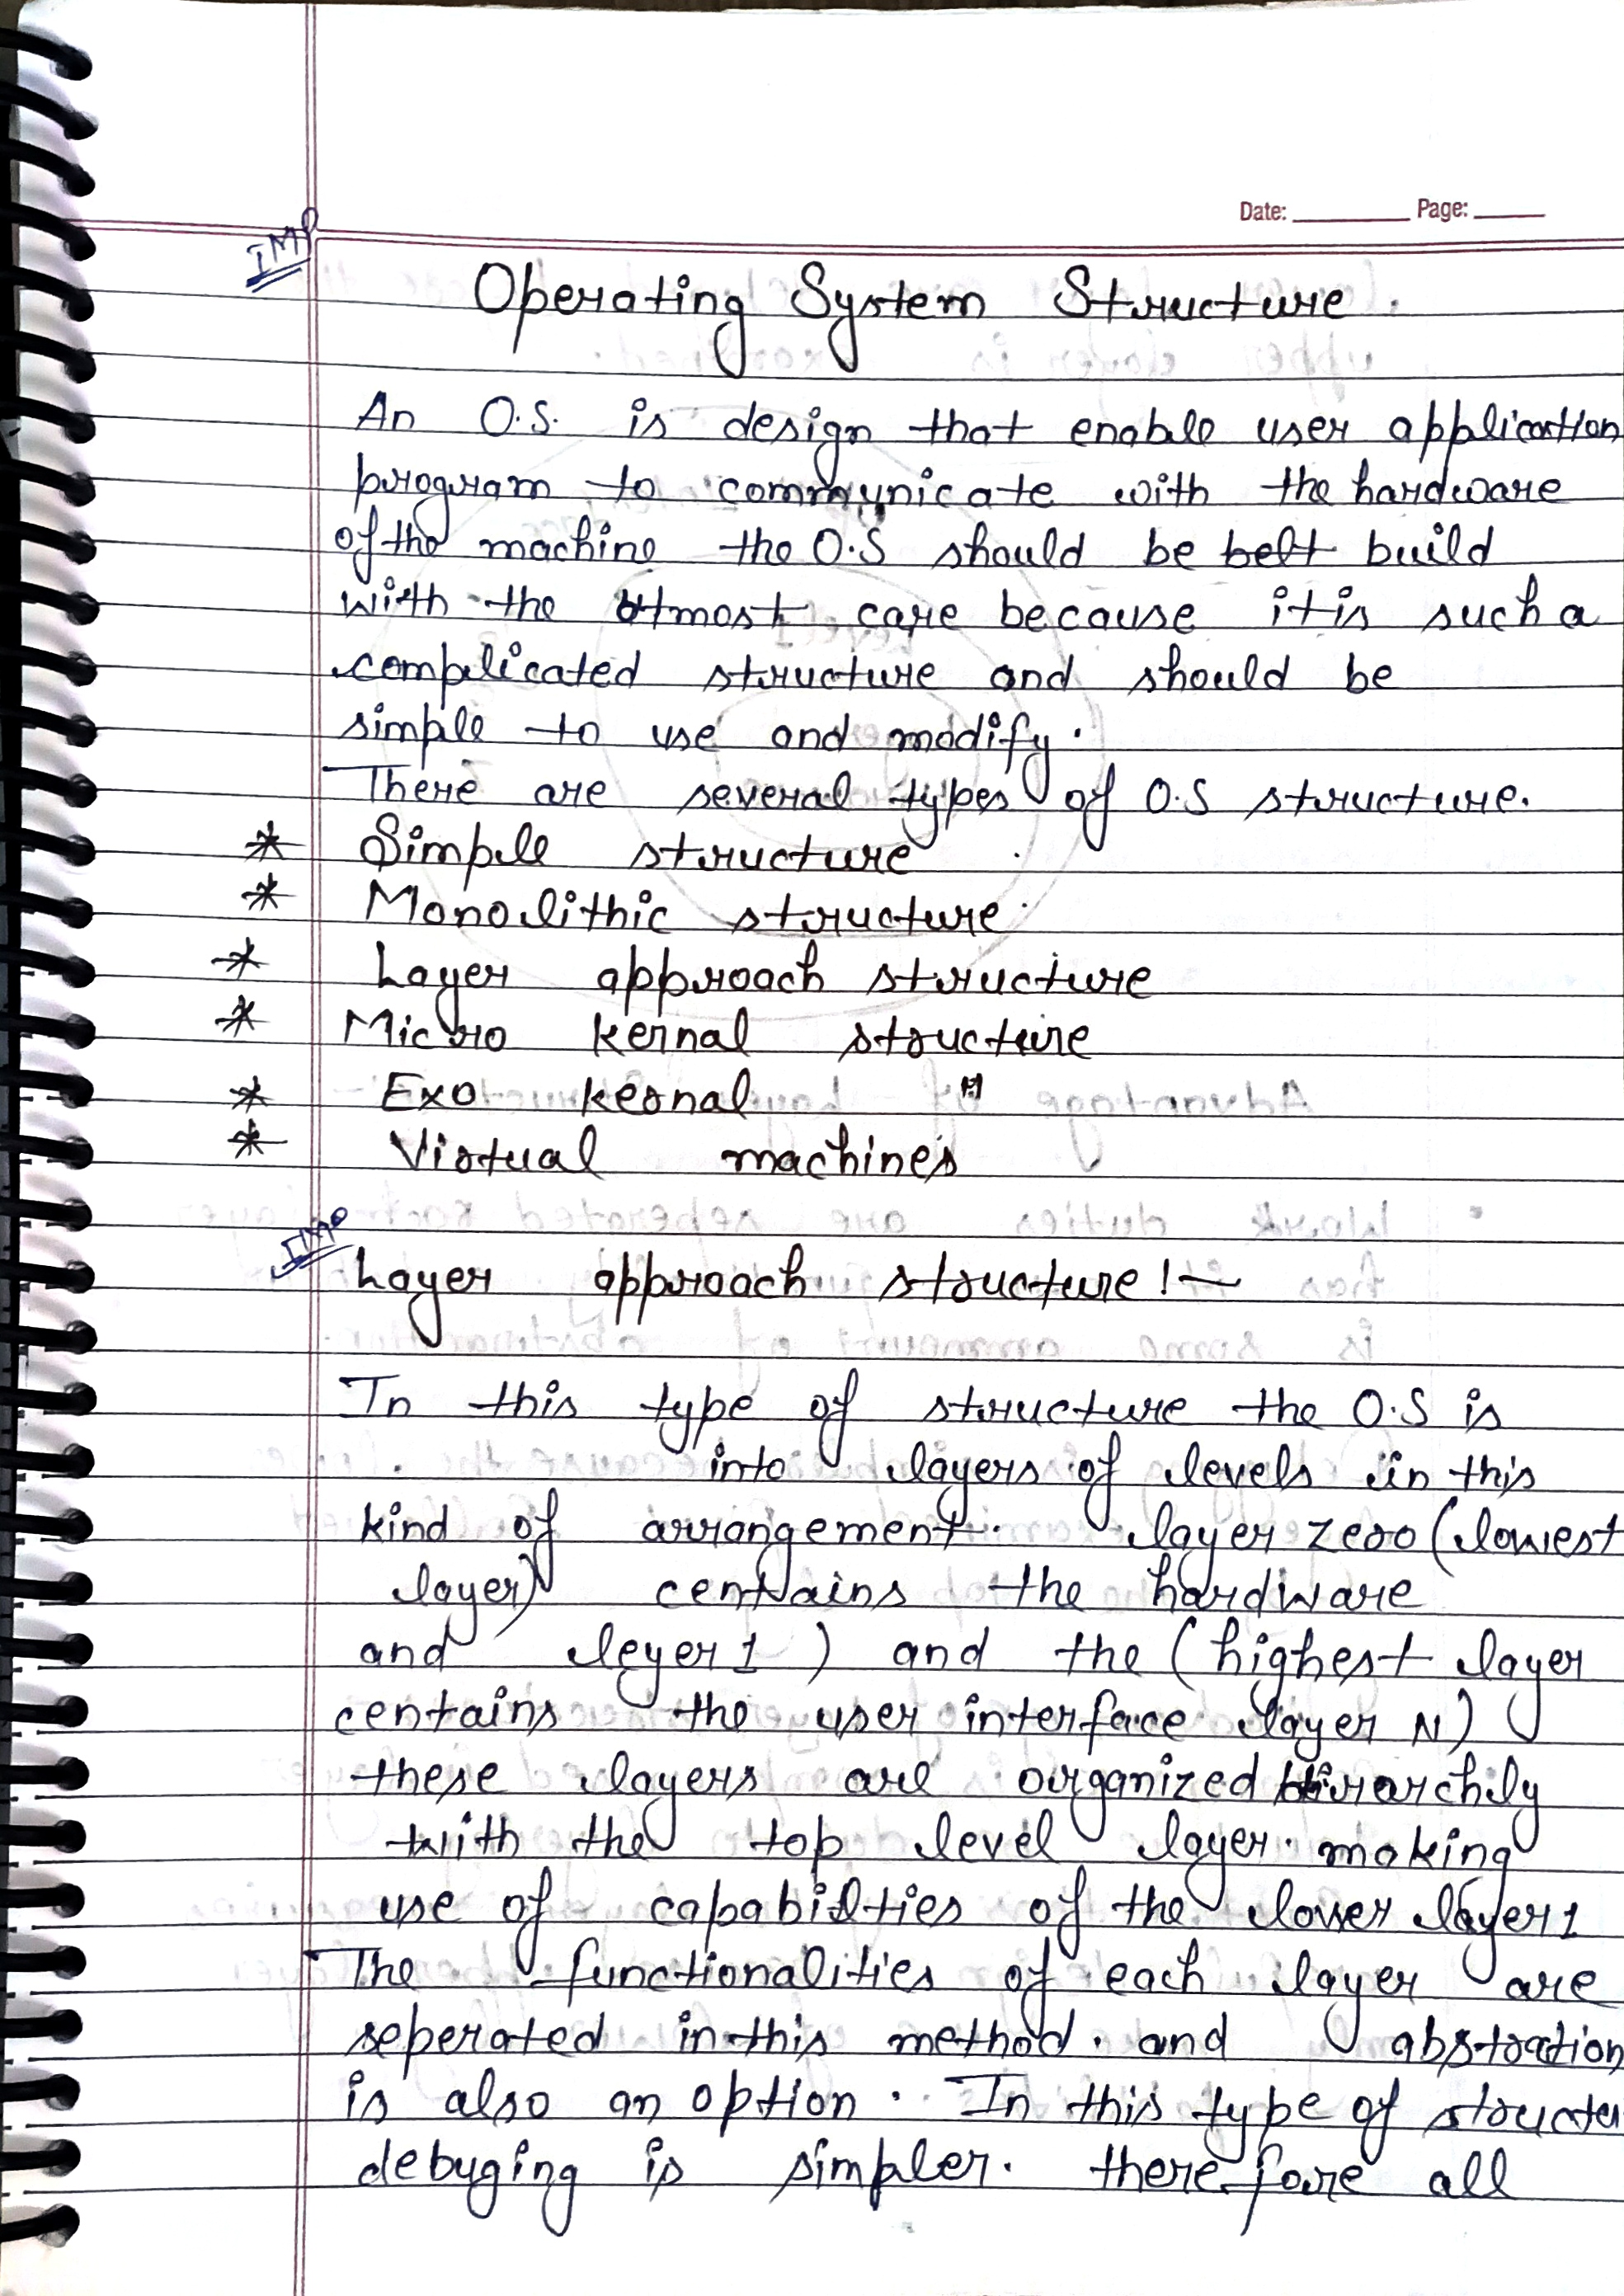 Date: ________ Page: _____
IMP
Operating System Structure.
An O.S. is design that enable user application
program to communicate with the hardware
of the machine the O.S should be belt build
with the utmost care because it is such a
complicated structure and should be
simple to use and modify.
There are several types of O.S structure.
* Simple structure
* Monolithic structure
* Layer approach structure
* Micro kernal structure
* Exo kernal "
* Virtual machines
IMP
Layer approach structure :-
In this type of structure the O.S is
into layers of levels in this
kind of arrangement. layer zero (lowest
layer) centains the hardware
and leyer 1 ) and the (highest layer
centains the user interface layer N)
these layers are organized hirarchily
with the top level layer. making
use of capabilties of the lower layer 1
The functionalities of each layer are
seperated in this method. and abstration
is also an option. In this type of structu
debuging is simpler. there fore all